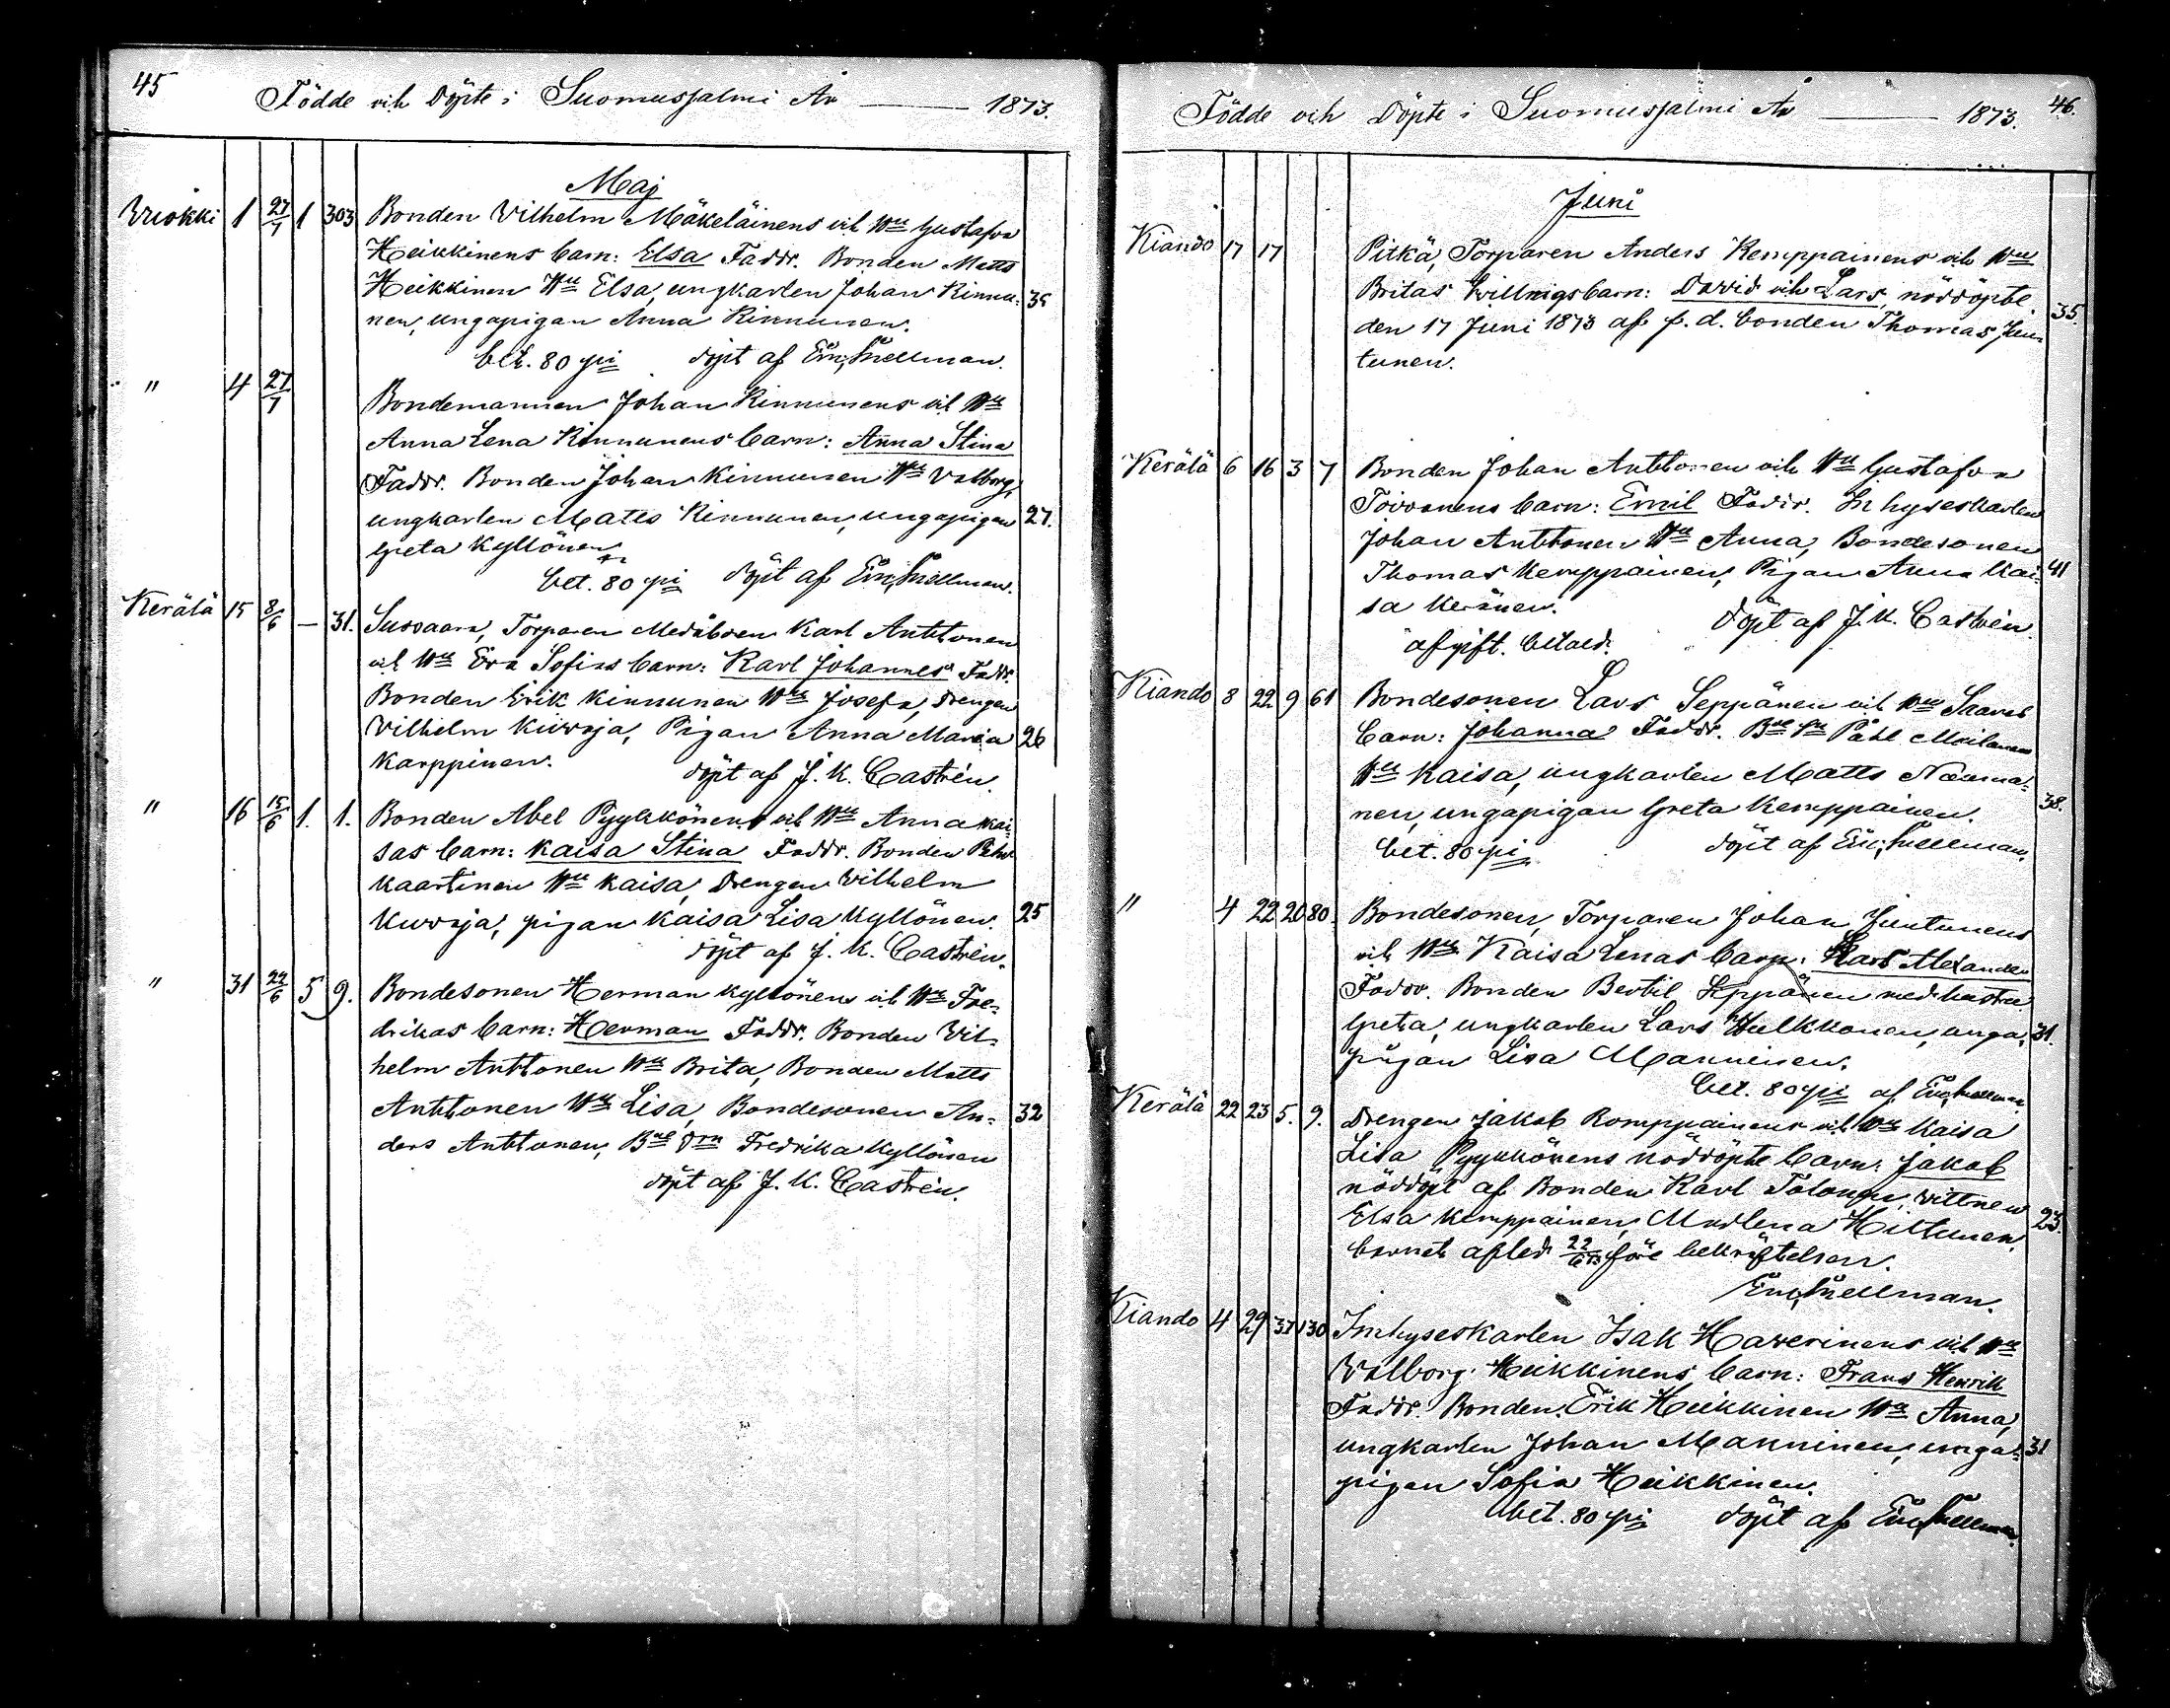 45
Födde och Döpte i Suomussalmi År — 1873.
Maj
Vuokki 1 27/7 1 303 Bonden Vilhelm Mäkeläinens och Hu Gustafva
Heikkinens barn: Elsa Faddr. Bonden Matts
Heikkinen Hu Elsa, ungkarlen Johan Kinnu-
nen, ungapigan Anna Kinnunen.
bet. 80 pi döpt af Snellman.
" 4 27/7 Bondemannen Johan Kinnunens och Hu
Anna Lena Kinnunens barn: Anna Stina
Faddr. Bonden Johan Kinnunen Hu Valborg,
ungkarlen Matts Kinnunen, ungapigan 27.
Greta Kyllönen
bet. 80 pi döpt af Snellman.
Kerälä 15 8/6 — 31. Susvaara, Torparen Medåboen Karl Anttonen
och Hu Eva Sofias barn: Karl Johannes Faddr.
Bonden Erik Kinnunen Hu Josefa, Drengen
Vilhelm Kuvaja, Pigan Anna Maria 26
Karppinen.
döpt af J. K. Castrén.
" 16 15/6 1. 1. Bonden Abel Pyykkönens och Hu Anna Kai-
sas barn: Kaisa Stina Faddr. Bonden Petter
Kaartinen Hu Kaisa, Drengen Vilhelm
Kuvaja, pigan Kaisa Lisa Kyllönen. 25
döpt af J. K. Castrén.
" 31 22/6 5 9. Bondesonen Herman Kyllönens och Hu Fre-
drikas barn: Herman Faddr. Bonden Vil-
helm Anttonen Hu Brita, Bonden Matts
Anttonen Hu Lisa, Bondesonen An- 32
ders Anttonen, Bde Drn Fredrika Kyllönen
döpt af J. K. Castrén.
Födde och Döpte i Suomussalmi År — 1873. 46.
Juni
Kiando 17 17 Pitkä, Torparen Anders Kemppainens och Hu
Britas tvillingsbarn: David och Lars, nöddöpte 35.
den 17 Juni 1873 af f. d. bonden Thomas Jun-
tunen.
Kerälä 6 16 3 7 Bonden Johan Anttonen och Hu Gustafva
Toivonens barn: Emil Faddr. Inhyseskarlen
Johan Anttonen Hu Anna, Bondesonen
Thomas Kemppainen, Pigan Anna Kai- 41
sa Keränen.
döpt af J. K. Castrén.
afgift. betald.
Kiando 8 22 9 61 Bondesonen Lars Seppänen och Hu Saaras
barn: Johanna Faddr. Bde sn Påhl Moilanen
Hu Kaisa, ungkarlen Matts Näuma-
nen, ungapigan Greta Kemppainen. 38.
bet. 80 pi döpt af Snellman.
" 4 22 20 80. Bondesonen, Torparen Johan Juntunens
och Hu Kaisa Lenas barn: Lars Alexander
Faddr. Bonden Bertil Seppänen med hustru
Greta, ungkarlen Lars Hulkkonen, unga- 31.
pigan Lisa Manninen.
bet. 80 pi af Snellman.
Kerälä 22 23 5. 9. Drengen Jakob Romppainens och Hu Kaisa
Lisa Pyykkönens nöddöpte barn: Jakob
nöddöpt af Bonden Karl Tolonen, vittnen
Elsa Kemppainen, Madlena Hiltunen, 23.
barnet afled 22/6 73 före bekräftelsen.
Snellman.
Kiando 4 29 37 130 Inhyseskarlen Isak Haverinens och Hu
Valborg Heikkinens barn: Frans Henrik
Faddr. Bonden Erik Heikkinen Hu Anna,
ungkarlen Johan Manninen, unga- 31
pigan Sofia Heikkinen.
bet. 80 pi döpt af Snellman.